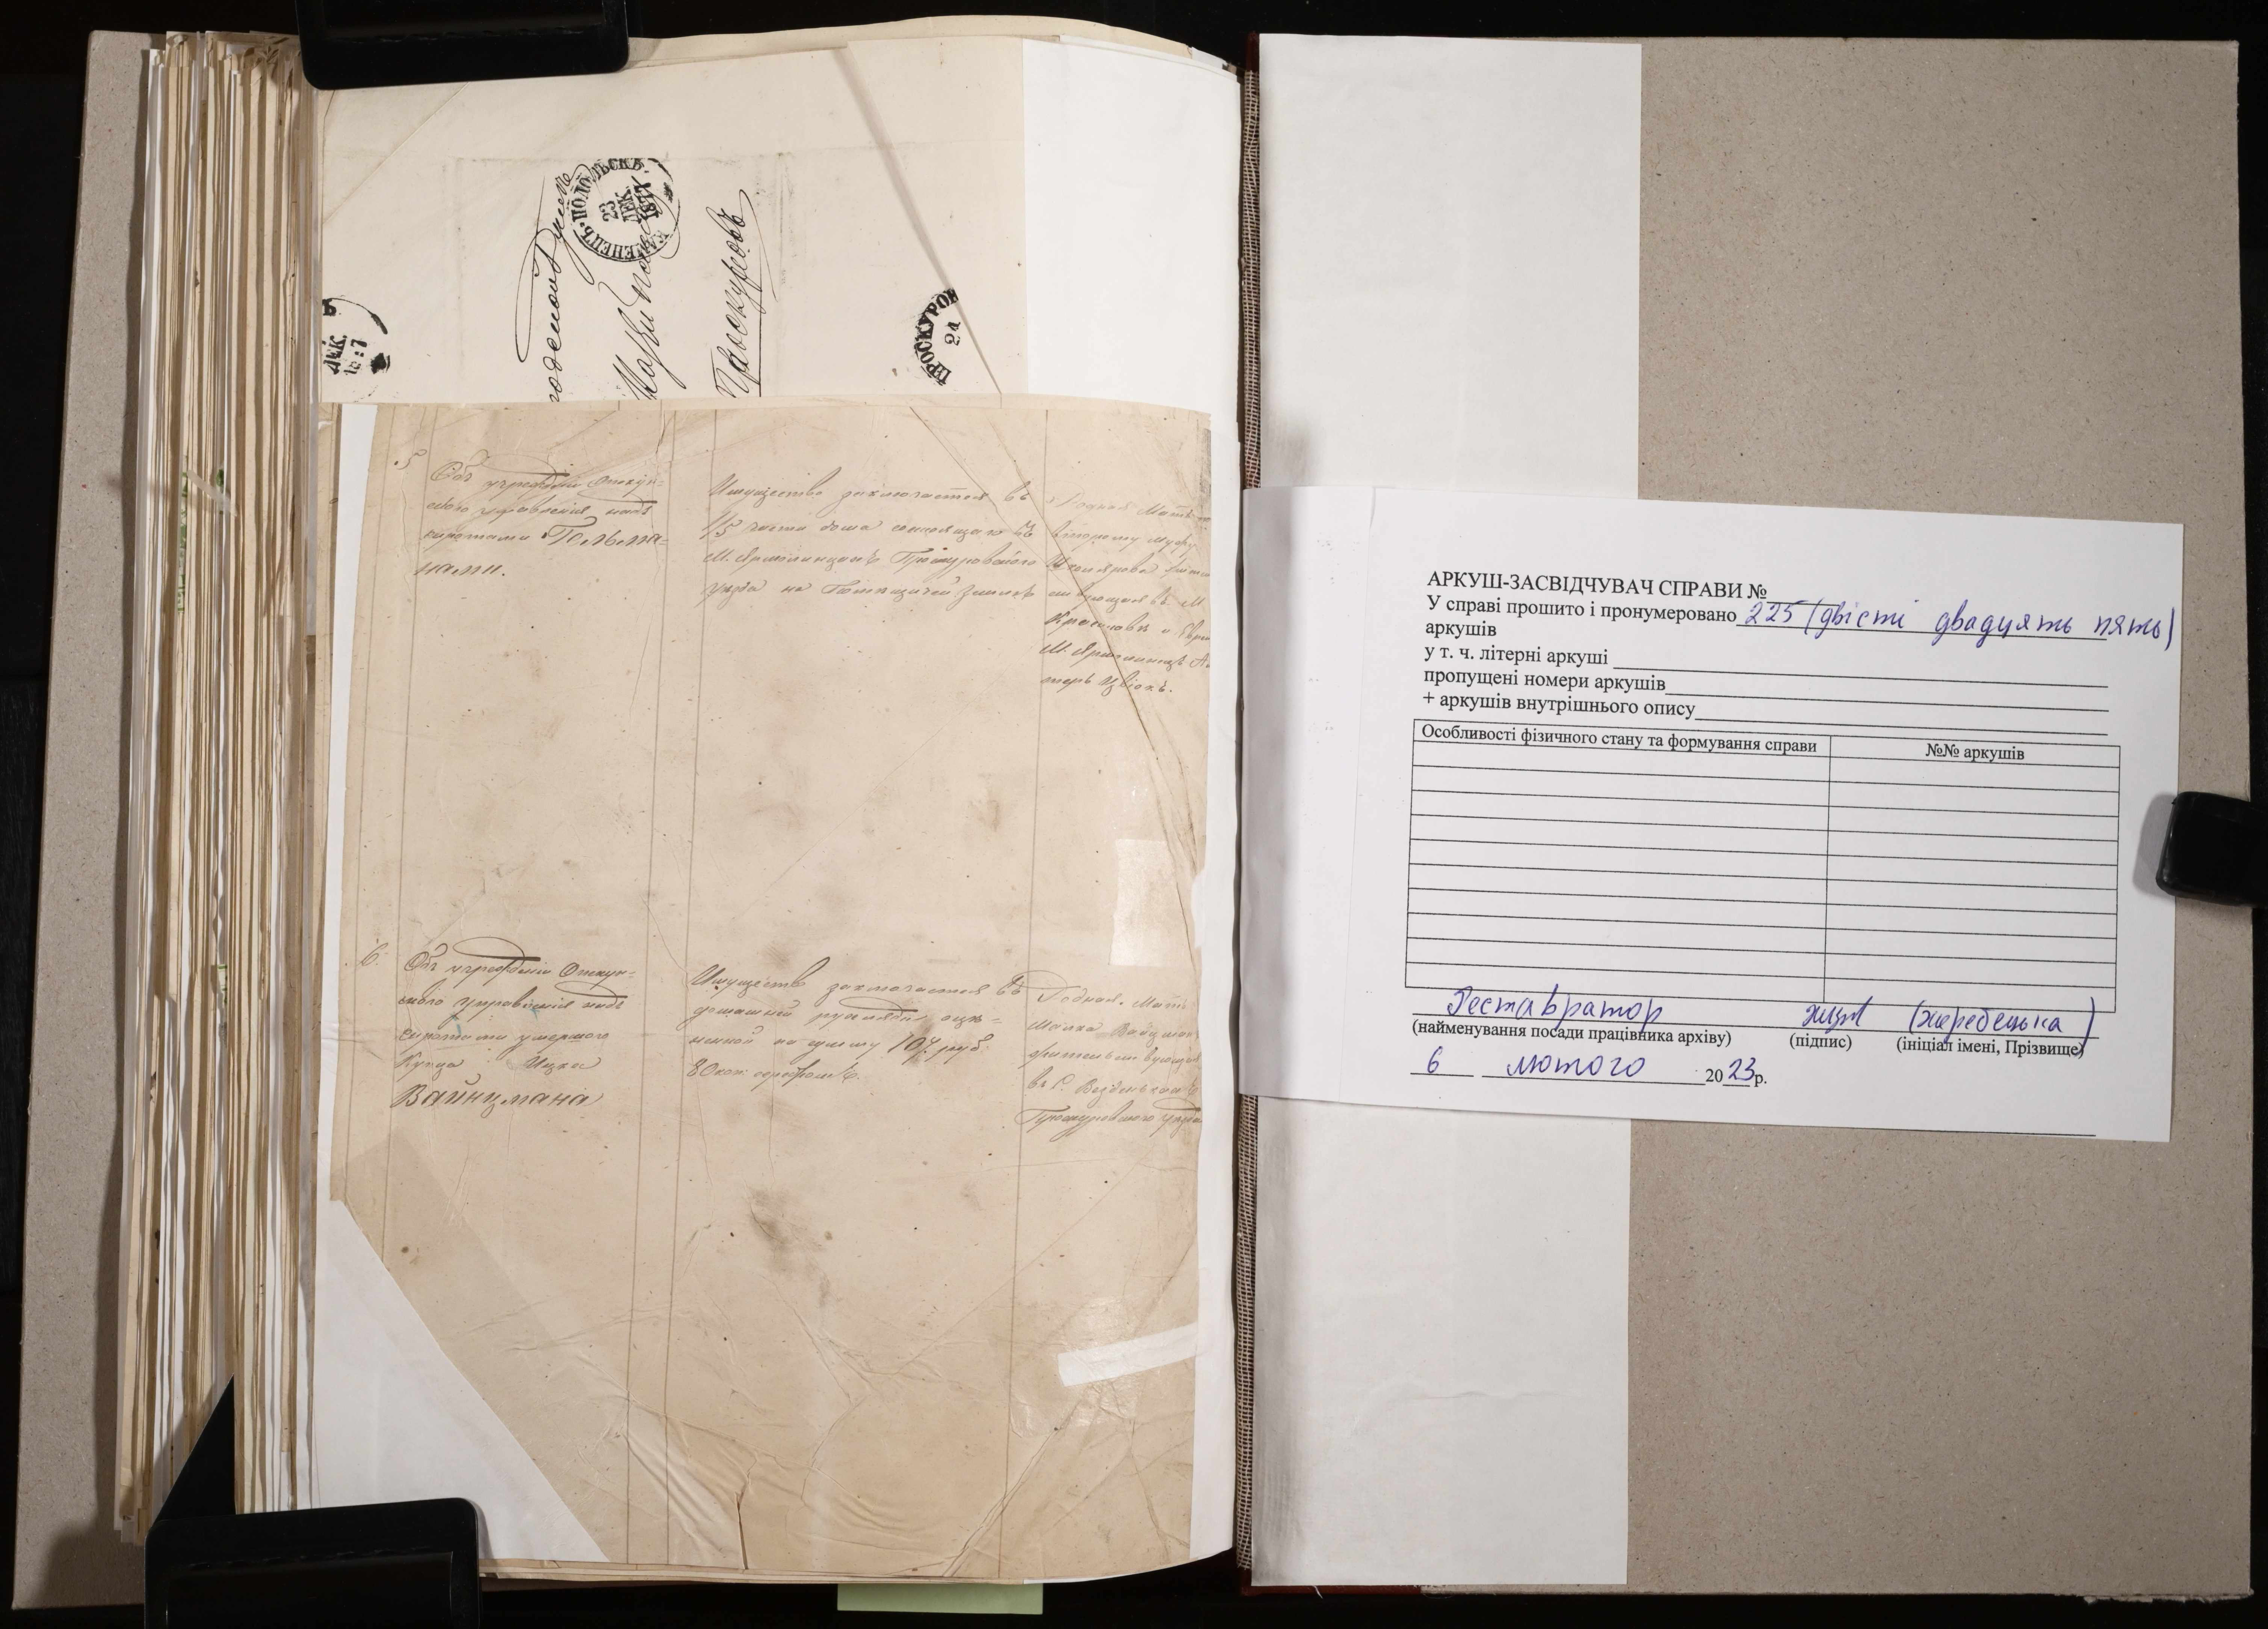 КАМЕНЕЦЪ-ПОДОЛЬСКЪ
23
ДЕК.
Проскуровъ
ДЕК.
ПРОСКУРОВ
21
5
Объ учрежденіи Опекун-
скаго управленія надъ
сиротами Гольма-
нами.
Имущество заключается въ
1/5 части дома состоящаго въ
М. Ярмолинцахъ Проскуровскаго
уѣзда на Помѣщичей землѣ
Родной Мат
второму мужу
въ М.
М. Ярмолинцѣ
6.
Объ учрежденіи Опекун-
скаго управленія надъ
сиротами умершаго
Купца Ицка
Вайнцмана
Имущество заключается въ
домашней рухляди оцѣ-
ненной на сумму 107 руб.
80 коп. серебромъ.
Родная Мать
Малка Вайцман
жительствующая
въ С.
Проскуровскаго уѣзда
АРКУШ-ЗАСВІДЧУВАЧ СПРАВИ №
У справі прошито і пронумеровано 225 (двісті двадцять пять)
аркушів
у т. ч. літерні аркуші
пропущені номери аркушів
+ аркушів внутрішнього опису
Особливості фізичного стану та формування справи №№ аркушів
Реставратор (Жеребецька)
(найменування посади працівника архіву) (підпис) (ініціал імені, Прізвище)
6 лютого 2023р.